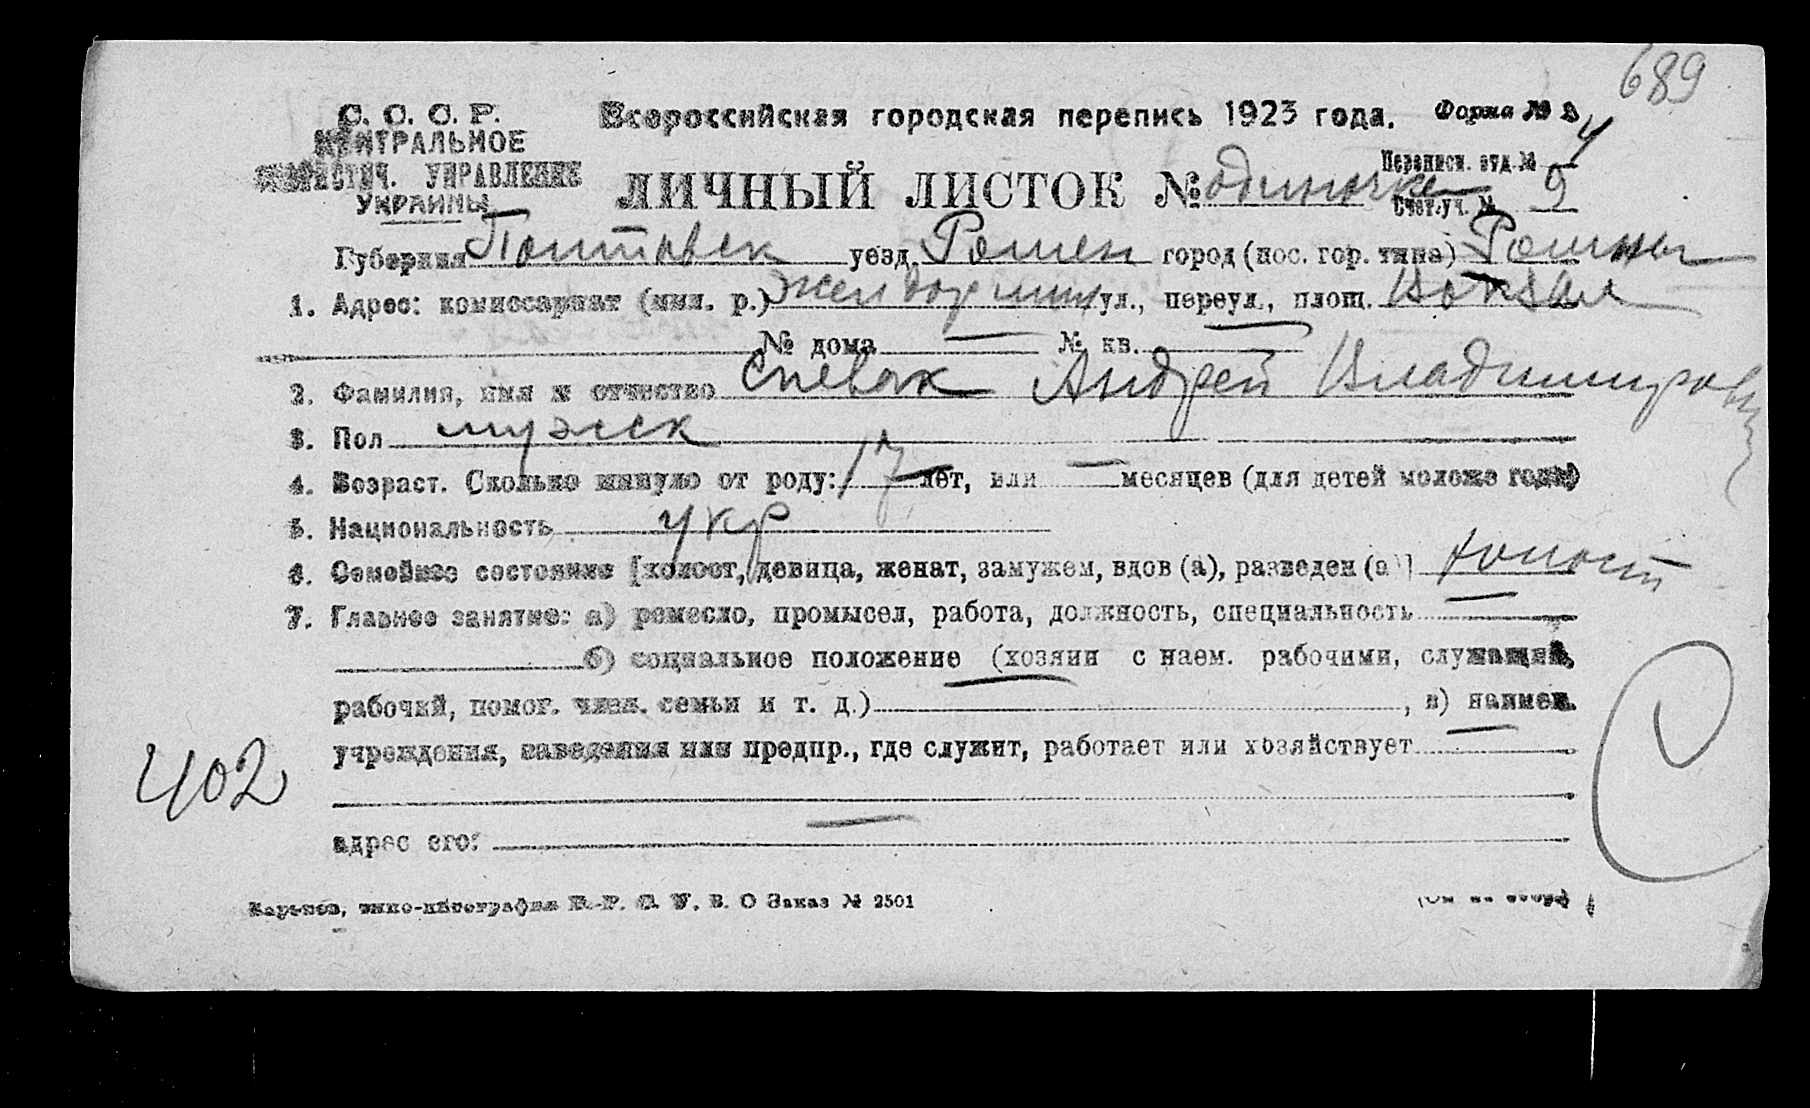 689
С. С. С. Р. Всероссийская городская перепись 1923 года. Форма №
ЦЕНТРАЛЬНОЕ
СТАТИСТИЧ. УПРАВЛЕНИЕ
УКРАИНЫ
Переписн. отд. № 4
ЛИЧНЫЙ ЛИСТОК № одиночке
Счет. уч. № 9
Губерния Полтавск уезд Ромен город (пос. гор. типа) Ромны
1. Адрес: комиссариат (мил. р.) ул., переул., площ. Вокзал
№ дома — № кв. —
2. Фамилия, имя и отчество Спевак Андрей Владимирович
3. Пол мужск
4. Возраст. Сколько минуло от роду: 17 лет, или — месяцев (для детей моложе года)
5. Национальность укр
6. Семейное состояние [холост, девица, женат, замужем, вдов (а), разведен (а)] холост
7. Главное занятие: а) ремесло, промысел, работа, должность, специальность —
б) социальное положение (хозяин с наем. рабочими, служащий,
рабочий, помог. член. семьи и т. д.) — , в) наимен.
учреждения, заведения или предпр., где служит, работает или хозяйствует —
402
адрес его: —
Харьков, типо-литография В. О Заказ № 2501